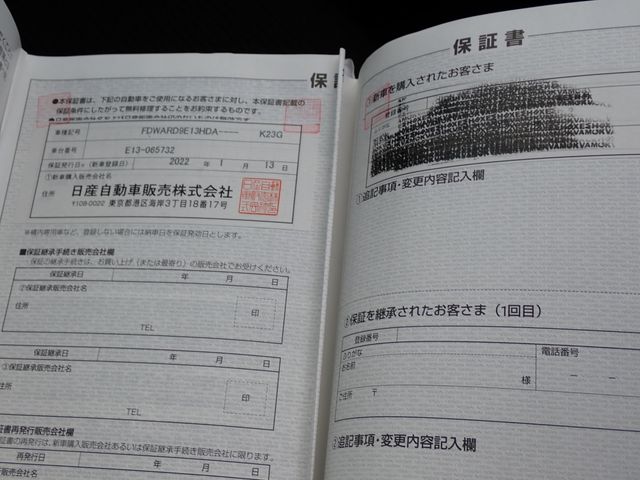 保証
●本保証書は、下記の自動車をご使用になるお客さまに対し、本保証書記載の
保証条件にしたがって無料修理することをお約束するものです。
車種記号 FDWARD8E13HDA----- K23G
車台番号 E13-065732
保証発行日=(新車登録日) 2022 年 1 月 13 日
①新車購入販売会社名
日産自動車販売株式会社
住所 〒108-0022 東京都港区海岸3丁目18番17号
※構内専用車など、登録しない場合には納車日を保証発効日とします。
■保証継承手続き販売会社欄
保証の継承手続きは、お買い上げ、(または最寄り)の販売会社でお受けください。
保証継承日 年 月 日
②保証継承販売会社名
住所 印
TEL
保証継承日 年 月 日
③保証継承販売会社名
住所 印
TEL
証書再発行販売会社欄
証書の再発行は、新車購入販売会社あるいは保証継承販売会社に限ります。
再発行日 年 月 日
保証書
①新車を購入されたお客さま
①追記事項・変更内容記入欄
②保証を継承されたお客さま(1回目)
登録番号
ふりがな
お名前 様
電話番号
― ―
ご住所 〒
②追記事項・変更内容記入欄